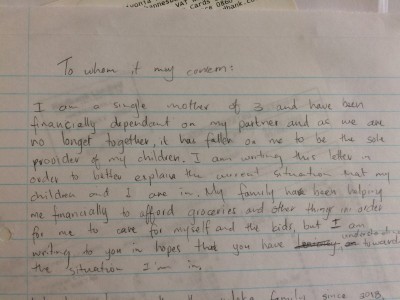 VAT
cards
To whom it may concern:
I am a single mother of 3 and have been
financially dependant on my partner and as we are
no longer together, it has fallen on me to be the sole
provider of my children. I am writing this letter in
order to better explain the current situation that my
children and I are in. My family have been helping
me financially to afford groceries and other things in order
for me to care for myself and the kids, but I am
writing to you in hopes that you have toward
the situation I'm in.
family since 2018,